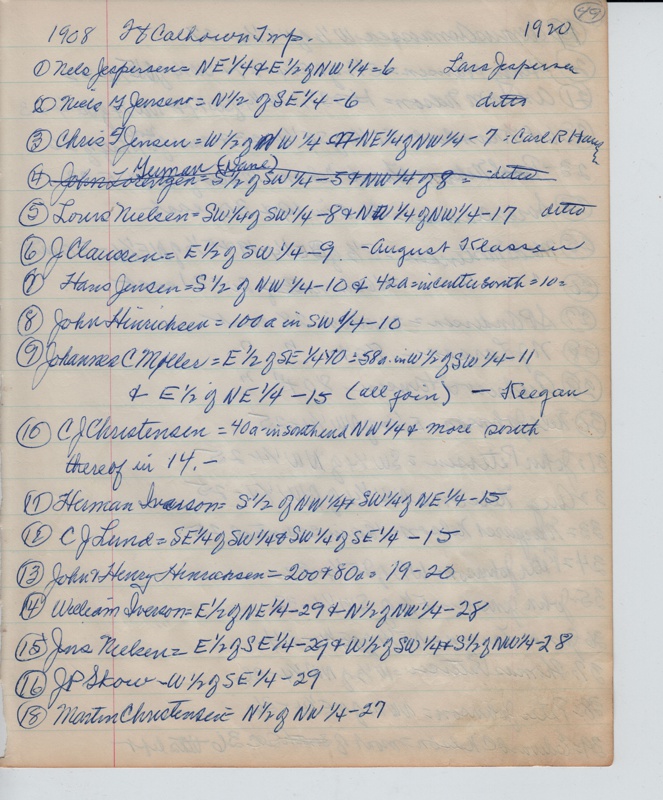 49
1908 Ft Calhown Twp. 1920
① Nels Jespersen = NE 1/4 & E 1/2 of NW 1/4 = 6 Lars Jespersen
② Niels G Jensen = N 1/2 of SE 1/4 - 6 ditto
③ Chris G Jensen = W 1/2 of NW 1/4 NE 1/4 of NW 1/4 - 7 = Carl R Hans
Yuman (Wane)
④ John Lorenzen = S 1/2 of SW 1/4 - 5 & NW 1/4 of 8 = ditto
⑤ Louis Nielsen = SW 1/4 of SW 1/4 - 8 & NW 1/4 of NW 1/4 - 17 ditto
⑥ J Claussen = E 1/2 of SW 1/4 - 9. - August Klassen
⑦ Hans Jensen = S 1/2 of NW 1/4 - 10 & 42a = in center south = 10 =
⑧ John Hinrichsen = 100 a in SW 1/4 - 10
⑨ Johannes C Moller = E 1/2 of SE 1/4 10 = 58a. in W 1/2 of SW 1/4 - 11
& E 1/2 of NE 1/4 - 15 (all join) - Keegan
⑩ C J Christensen = 40a - in south end NW 1/4 & more south
thereof in 14. -
⑪ Herman Iverson = S 1/2 of NW 1/4 & SW 1/4 of NE 1/4 - 15
⑫ C J Lund = SE 1/4 of SW 1/4 & SW 1/4 of SE 1/4 - 15
⑬ John & Henry Hinrichsen = 200 & 80a = 19-20
⑭ William Iverson = E 1/2 of NE 1/4 - 29 & N 1/2 of NW 1/4 - 28
⑮ Jens Nielsen = E 1/2 of SE 1/4 - 29 & W 1/2 of SW 1/4 & S 1/2 of NW 1/4 - 28
⑯ J P Skow - W 1/2 of SE 1/4 - 29
⑱ Martin Christensen = N 1/2 of NW 1/4 - 27